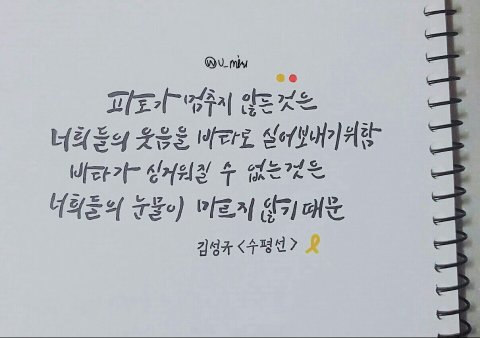 ⓦu_misu
파도가 멈추지 않는것은
너희들의 웃음을 바다로 실어보내기위함
바다가 싱거워질 수 없는것은
너희들의 눈물이 마르지 않기때문
김성규 <수평선>